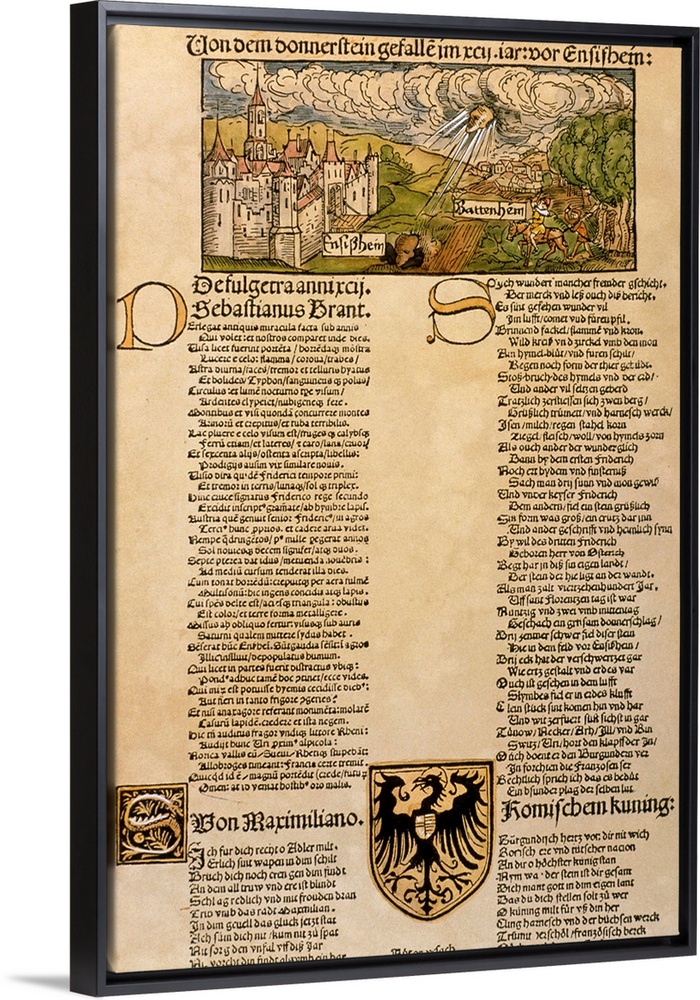 Von dem donnerstein gefallē im xcij. iar: vor Ensishem:
Battenhēm
Ensißhem
De fulgetra anni xcij.
Sebastianus Brant.
Perlegat antiquis miracula facta sub annis
Qui volet: et nostros comparet inde dies.
Visa licet fuerint portēta / horrēdaq3 mōstra
Lucere e celo: flamma / corona / trabes /
Astra diurna / faces / tremor et telluris hyatus
Et bolides / Typhon / sanguineus q3 polus /
Circulus: et lumē nocturno tpe visum /
Ardentes clypei / et nubigeneq3 fere.
Montibus et visi quondā concurrere montes
Armorū et crepitus / et tuba terribilis.
Lac pluere e celo visum est / fruges q3 calybsq3
Ferrū etiam / et lateres / et caro / lana / cruor /
Et sexcenta alijs / ostenta ascripta libellis:
Prodigijs ausim vix similare nouis.
Visio dira qdē Friderici tempore primi:
Et tremor in terris / lunaq3 / sol q3 triplex.
Hinc cruce signatus Friderico rege secundo
Excidit inscript9 gramate / ab hymbre lapis.
Austria quē genuit senior Frideric9 / in agros
Terci9 hunc pprios. et cadere arua videt.
Nempe qdringētos / p9 mille peregerat annos
Sol nouiesq3 decem signifer / atq3 duos.
Septē preterea dat idus / metuenda nouēbris:
Ad mediū cursum tenderat illa dies.
Cum tonat horrēdū: crepuitq3 per aera fulmē
Multisonū: hic ingens concidit atq3 lapis.
Cui spēs delte est / acies q3 triangula: obustus
Est color / et terre forma metalligere.
Missus ab obliquo fertur: visus q3 sub auris
Saturni qualem mittere sydus habet.
Senserat hūc Enszhei. Sūtgaudia sensit: in agros
Illic insiluit / depopulatus humum.
Qui licet in partes fuerit distractus vbiq3:
Pond9 adhuc tamē hoc ptinet / ecce vides.
Qui mirū est potuisse hyemis cecidisse dieb9:
Aut fieri in tanto frigore pgenies:
Et nisi anaxagore referant monumēta: molarē
Casurū lapidē. credere et ista negem.
Hic tn auditus fragor vndiq3 littore Rheni:
Audijt hunc Uri proxim9 alpicola:
Norica vallis eū / Sueui / Rhetiq3 stupebāt:
Allobroges timeant: Francia certe tremit.
Quicqd id ē / magnū portēdit (crede) futurū
Omen: at id veniat hostib9 oro malis.
Sych wundert mancher fremder gschicht.
Der merck vnd leß ouch diß bericht.
Es sint gesehen wunder vil
Im lufft / comet vnd füren pfil.
Brinnend fackel / flammē vnd kron.
Wild kreiß vnd zirckel vmb den mon
Am hymel. blut / vnd füren schilt /
Regen noch form der thier gebildt.
Stoß. bruch. des hymels vnd der erd /
Und ander vil seltzen geberd
Tratzlich zerstiessen sich zwen berg /
Grüßlich trümett / vnd harnesch werck /
Isen / milch / regen stahel korn
Ziegel / fleisch / woll / von hymels zorn
Als ouch ander der wunderglich
Dann by dem ersten Friderich
Noch ert bydem vnd finsternuß
Sach man drij sunn vnd mon gewiß
Und vnder keyser Friderich
Dem andern / fiel ein stein grüßlich
Sin form was groß / ein crutz dar inn
Und ander geschrifft vnd heimlich synn
By wil des dritten Friderich
Geboren herr von Osterich
Begt har in diß sin eigen landt /
Der stein der hie ligt an der wandt.
Als man zalt viertzehenhundert Jar.
Uff sant Florentzen tag ist war
Nüntzig vnd zwei vmb mittentag
Geschach ein grusam donnerschlag /
Drij zentner schwer fiel diser stein
Hie in dem feld vor Ensißhein /
Drij eck hat der verschwertzet gar
Wie ertz gestalt vnd erdes var
Ouch ist gesehen in dem lufft
Slymbes fiel er in erdes klufft
Clein stück sint komen hin vnd har
Und wit zerfuert suß sichst in gar
Tünow / Necker / Arh / Ill / vnd Rin
Switz / Uri / hort den klapff der Jn /
Ouch doent er den Burgundern ver
In forchten die Franzosen ser
Rechtlich sprich ich das es bedüt
Ein bsunder plag der selben lut
Von Maximiliano.
Romischem kuning:
Ich für dich recht o Adler milt.
Erlich sint wapen in dim schilt
Bruch dich noch eren gen dim findt
An dem all truw vnd ere ist blindt
Schlag redlich vnd mit frouden dran
Trib vmb das radt Maximilian.
In dim geuell das gluck jetzt stat
Ach sum dich nit / kum nit zu spat
Nit sorg den vnfal vff diß Jar
Nit vorcht din findt als vmb ein har
Burgundisch hertz von dir nit wich
Romsch ere vnd tütscher nacion
An dir o höchster künig stan
Nym war der stein ist dir gesant
Dich mant gott in dim eigen lant
Das du dich stellen solt zu wer
O küning milt für vß din her
Cling harnesch vnd der büchsen werck